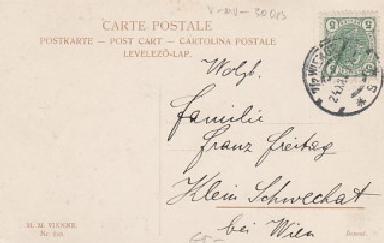 CARTE POSTALE
POSTKARTE — POST CART — CARTOLINA POSTALE
LEVELEZŐ-LAP.
5 5
Wolgb.
Familie
Franz Freitag
Klein Schwechat
bei Wien
M. M. VIENNE.
Nr.